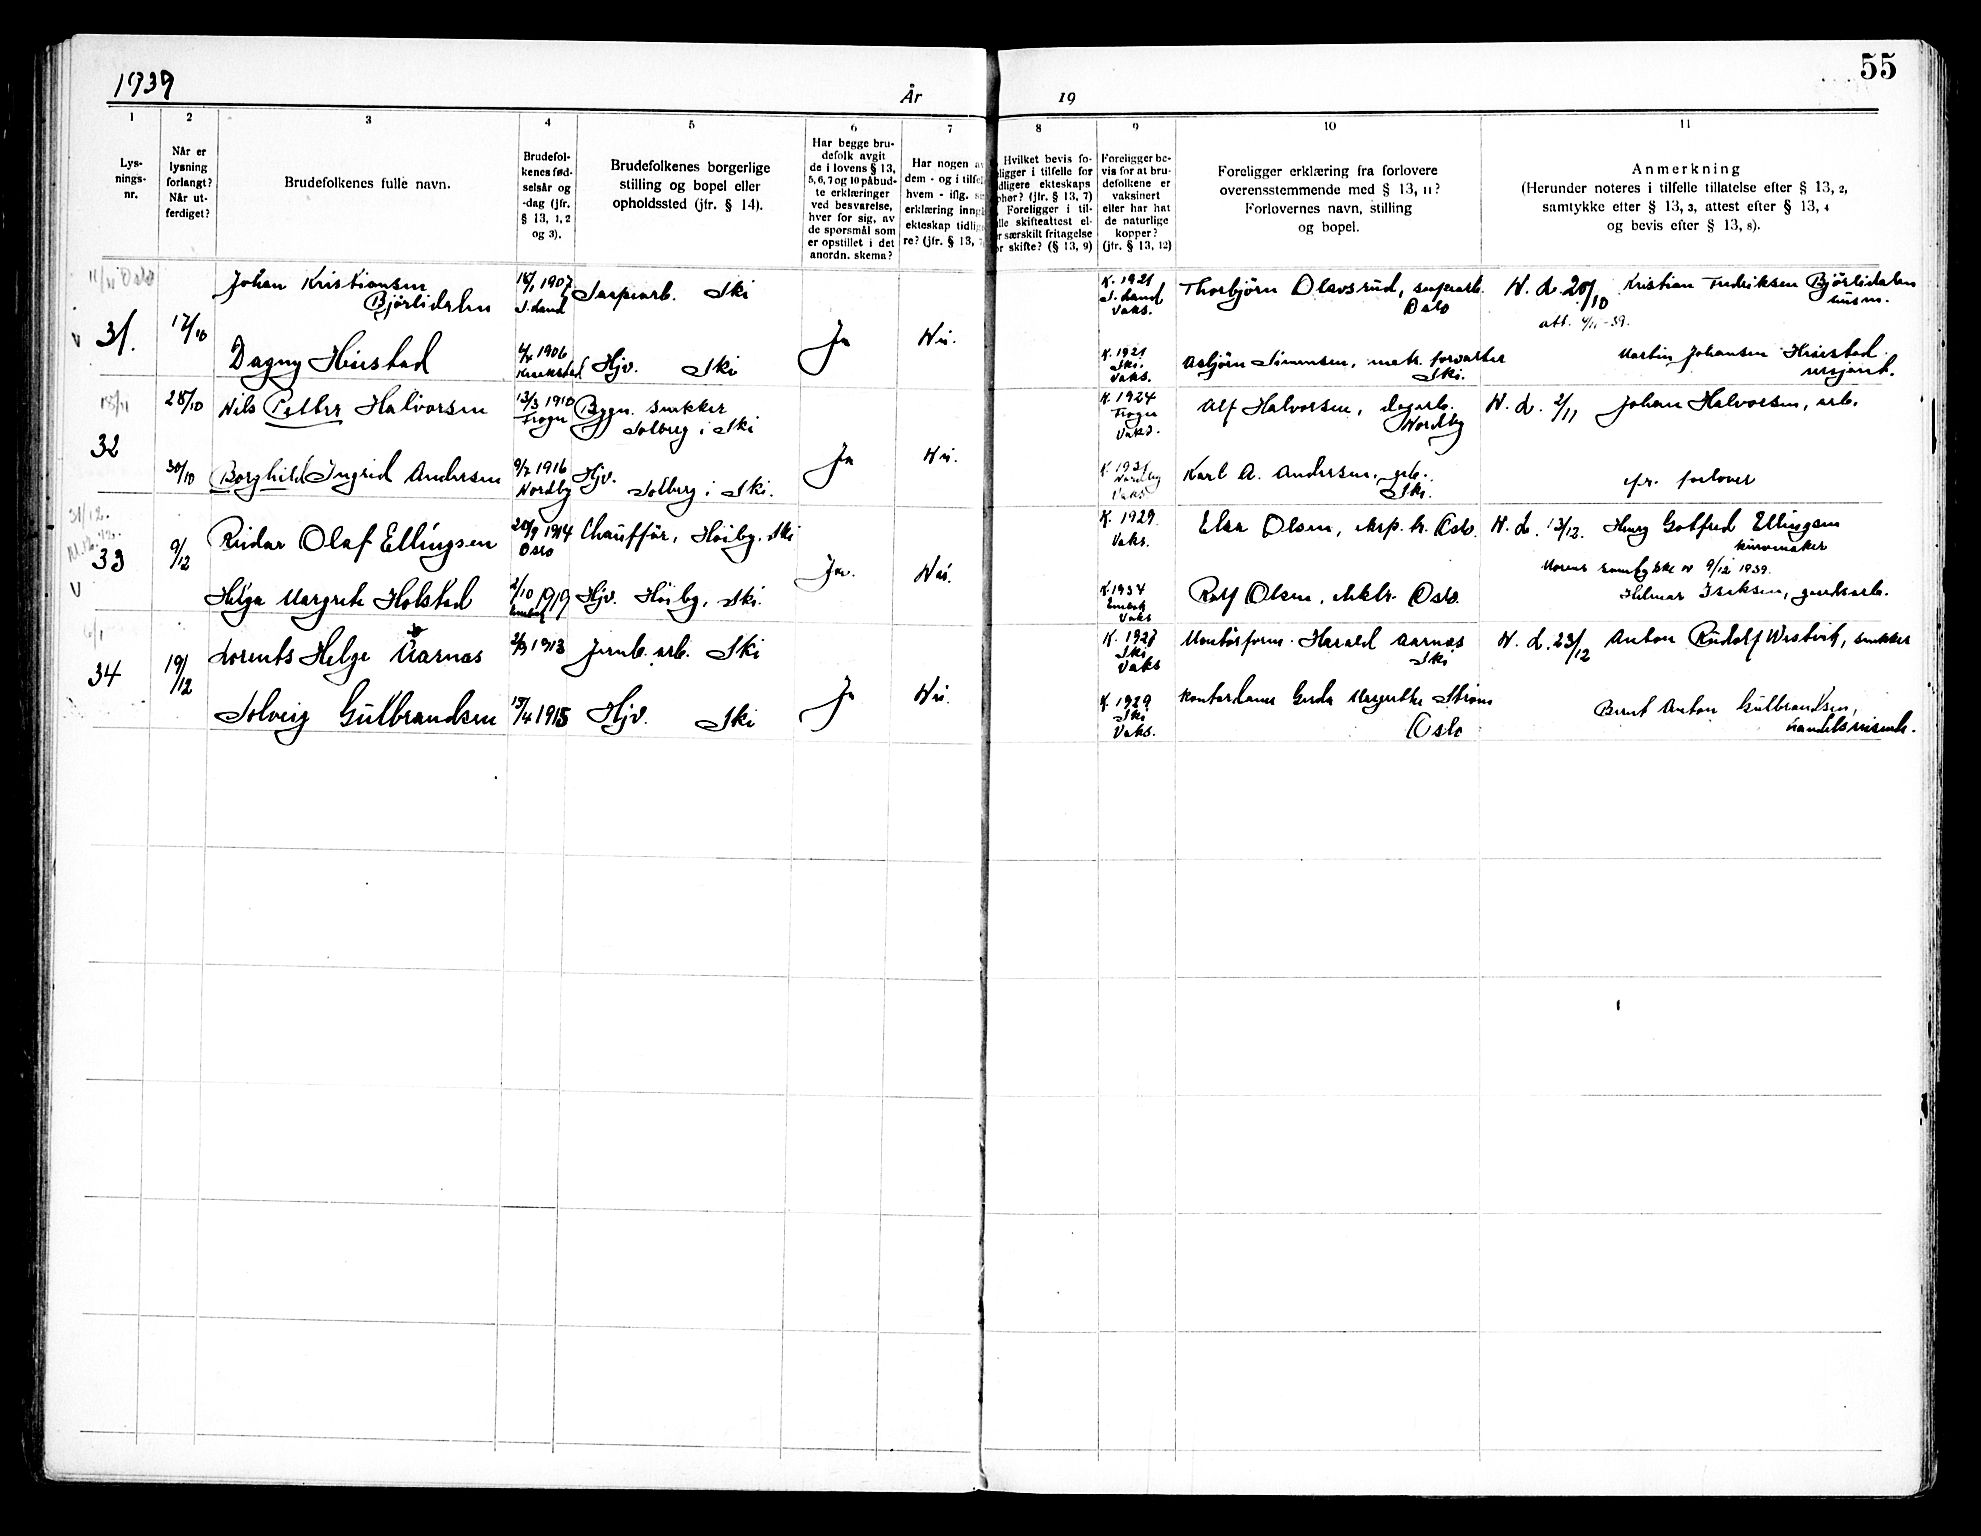 1939
55
År 19
1 2 3 4 5 6 7 8 9 10 11
Lys-
nings-
nr.
Når er
lysning
forlangt?
Når ut-
ferdiget?
Brudefolkenes fulle navn.
Brudefol-
kenes fød-
selsår og
-dag (jfr.
§ 13, 1, 2
og 3).
Brudefolkenes borgerlige
stilling og bopel eller
opholdssted (jfr. § 14).
Har begge bru-
defolk avgit
de i lovens § 13,
5, 6, 7 og 10 påbud-
te erklæringer
ved besvarelse,
hver for sig, av
de spørsmål som
er opstillet i det
anordn. skema?
Har nogen av
dem - og i tilfel
hvem - iflg. s
erklæring inng
ekteskap tidlig
re? (jfr. § 13,
Hvilket bevis fo-
ligger i tilfelle for
dligere ekteskaps
phør? (jfr. § 13, 7)
Foreligger i til-
lle skifteattest el-
r særskilt fritagelse
or skifte? (§ 13, 9)
Foreligger be-
vis for at bru-
defolkene er
vaksinert
eller har hat
de naturlige
kopper?
(jfr. § 13, 12)
Foreligger erklæring fra forlovere
overensstemmende med § 13, 11?
Forlovernes navn, stilling
og bopel.
Anmerkning
(Herunder noteres i tilfelle tillatelse efter § 13, 2,
samtykke efter § 13, 3, attest efter § 13, 4
og bevis efter § 13, 8).
11/11 Oslo
31.
17/10
Johan Kristiansen
Bjørlidalen
1907
S. Land
Sapearb. Ski
K. 1921
S. Land
Vaks.
Thorbjörn Olavsrud, sapearb.
Oslo
N. L. 20/10
att. 4/11-39.
Kristian Fredriksen Bjørlidalen
husm.
V
Dagny Heiestad
1906
Hjv. Ski
Ja
Nei.
K. 1921
Ski.
Vaks.
Asbjörn Simensen,
Ski.
Martin Johansen Heiestad
18/11
32
28/10
Nils Petter Halvorsen
13/3 1910
Frogn
Bygn. snekker
Solberg i Ski
K. 1924
Frogn
Vaks.
Alf Halvorsen,
Nordby
N. L. 2/11
Johan Halvorsen, arb.
30/10
Borghild Ingrid Andersen
9/7 1916
Nordby
Hjv.
Solberg i Ski.
Ja
Nei.
K. 1931
Nordby
Vaks
Karl A. Andersen, arb.
Ski.
fr. forlover
31/12.
33
9/12
Reidar Olaf Ellingsen
20/9 1914
Oslo
Chauffør, Höiby. Ski
K. 1929.
Vaks.
Elsa Olsen, eksp. h. Oslo.
N. L. 13/12.
Henry Gotfred Ellingsen
kurvmaker
Ja.
Nei.
Morens samtykke av 9/12 1939.
V
Helga Margrete Holstad
2/10 1919
Enebak
Hjv. Höiby, Ski.
K. 1934
Enebak
Vaks
Rolf Olsen, elektr. Oslo.
Hilmar Isaksen, gardsarb.
34
19/12
Lorents Helge Aarnas
2/9 1913
Jernb. arb. Ski
K. 1928
Ski
Vaks
Montörform. Harald Aarnas
Ski
N. L. 23/12
Anton Rudolf Westvik, snekker
Solveig Gulbrandsen
15/4 1915
Hjv. Ski
Ja
Nei.
K. 1929
Ski
Vaks.
Kontordame Gerda Margrethe Ström
Oslo
Bernt Anton Gulbrandsen,
handelsreisende.